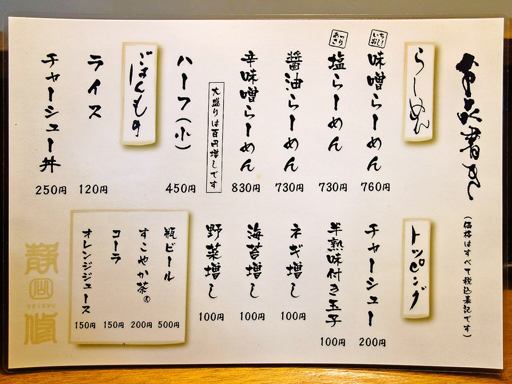 お品書き
(価格はすべて税込表記です)
らーめん
いちおし!
味噌らーめん 760円
あっさり
塩らーめん 730円
醤油らーめん 730円
辛味噌らーめん 830円
大盛りは百円増しです
ハーフ(小) 450円
ごはんもの
ライス 120円
チャーシュー丼 250円
トッピング
チャーシュー 200円
半熟味付き玉子 100円
ネギ増し 100円
海苔増し 100円
野菜増し 100円
瓶ビール 500円
すこやか茶 200円
コーラ 150円
オレンジジュース 150円
静修